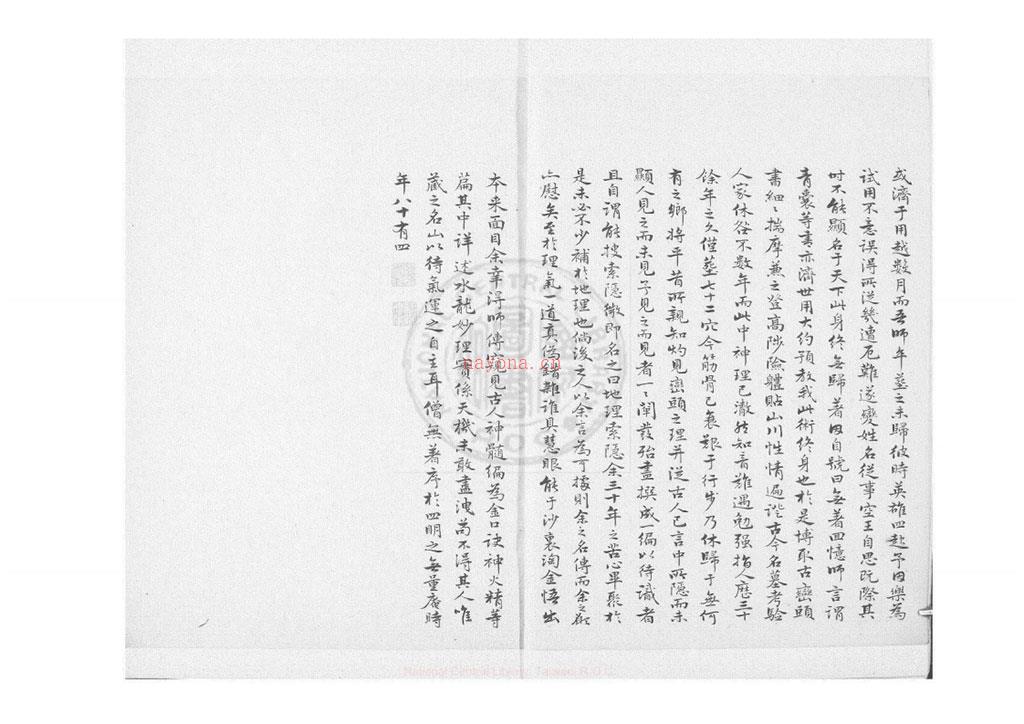 或濟于用越數月而吾師年蓋之未歸彼時英雄四起予因樂為
試用不意誤得所從幾遭厄難遂變姓名從事空王自思既際其
时不能顯名于天下此身終無歸著因自號曰無著回憶師言謂
青囊等書亦濟世用大約預教我此術終身也於是博取古巒頭
書細〻揣摩兼之登高陟險體貼山川性情遍證古今名墓考驗
人家休咎不數年而此中神理已澈然知音難遇勉强指人歷三十
餘年之久僅塟七十二穴今筋骨已衰艱于行步乃休歸于無何
有之鄉將平昔所親知灼見巒頭之理并從古人已言中所隱而未
顯人見之而未見予見之而見者一〻闡發殆盡撰成一編以待識者
且自謂能搜索隱微即名之曰地理索隱余三十年之苦心畢聚於
是未必不少補於地理也倘後之人以余言為可據則余之名傳而余之
亦慰矣至於理氣一道真偽錯雜誰具慧眼能于沙裏淘金悟出
本来面目余幸淂師傳窺見古人神髓編為金口訣神火精等
篇其中詳述水龍妙理實係天機未敢盡洩苟不得其人唯
藏之名山以待氣運之自主耳僧無著序於四明之無量庵時
年八十有四
nayona.cn
National Central Library, Taiwan, R.O.C.